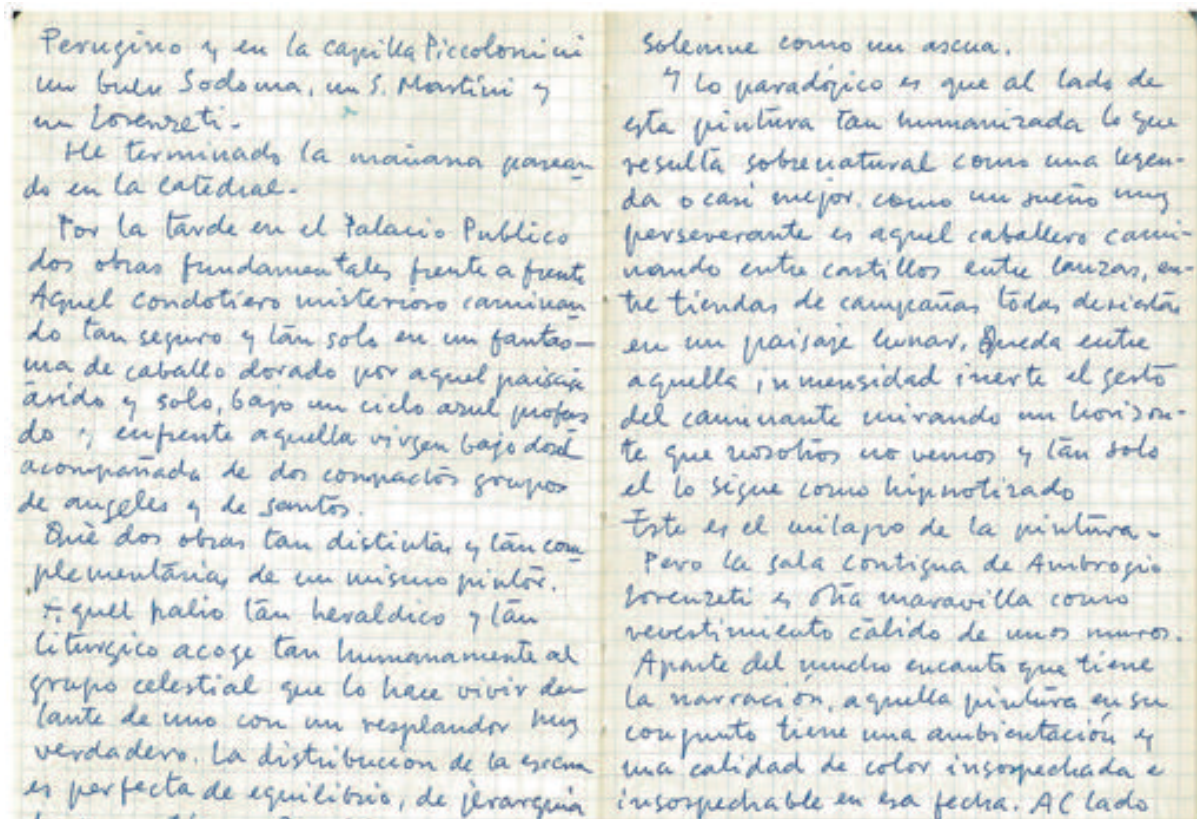 Perugino y en la capilla Piccolomini
un buen Sodoma, un S. Martini y
un Lorenzeti.
He terminado la mañana pasean
do en la catedral.
Por la tarde en el Palacio Publico
dos obras fundamentales frente a frente
Aquel condotiero misterioso caminan
do tan seguro y tan solo en un fantas-
ma de caballo dorado por aquel paisaje
árido y solo, bajo un cielo azul profun
do y enfrente aquella virgen bajo dosel
acompañada de dos compactos grupos
de angeles y de santos.
Qué dos obras tan distintas y tan com
plementarias de un mismo pintor.
Aquel palio tan heraldico y tan
liturgico acoge tan humanamente al
grupo celestial que lo hace vivir de
lante de uno con un resplandor muy
verdadero. La distribucion de la escena
es perfecta de equilibrio, de jerarquia
solemne como un ascua.
Y lo paradójico es que al lado de
esta pintura tan humanizada lo que
resulta sobrenatural como una leyen-
da o casi mejor, como un sueño muy
perseverante es aquel caballero cami-
nando entre castillos entre lanzas, en-
tre tiendas de campañas todas desiertas
en un paisaje lunar. Queda entre
aquella inmensidad inerte el gesto
del caminante mirando un horizon-
te que nosotros no vemos y tan solo
el lo sigue como hipnotizado
Este es el milagro de la pintura.
Pero la sala contigua de Ambrogio
Lorenzeti es otra maravilla como
revestimiento cálido de unos muros.
Aparte del mucho encanto que tiene
la narración, aquella pintura en su
conjunto tiene una ambientación y
una calidad de color insospechada e
insospechable en esa fecha. Al lado